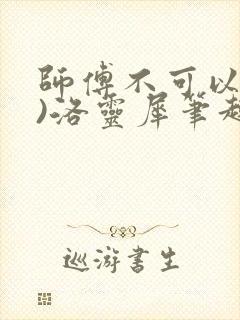 師傅不可以
)洛靈犀筆趣
巡游書生